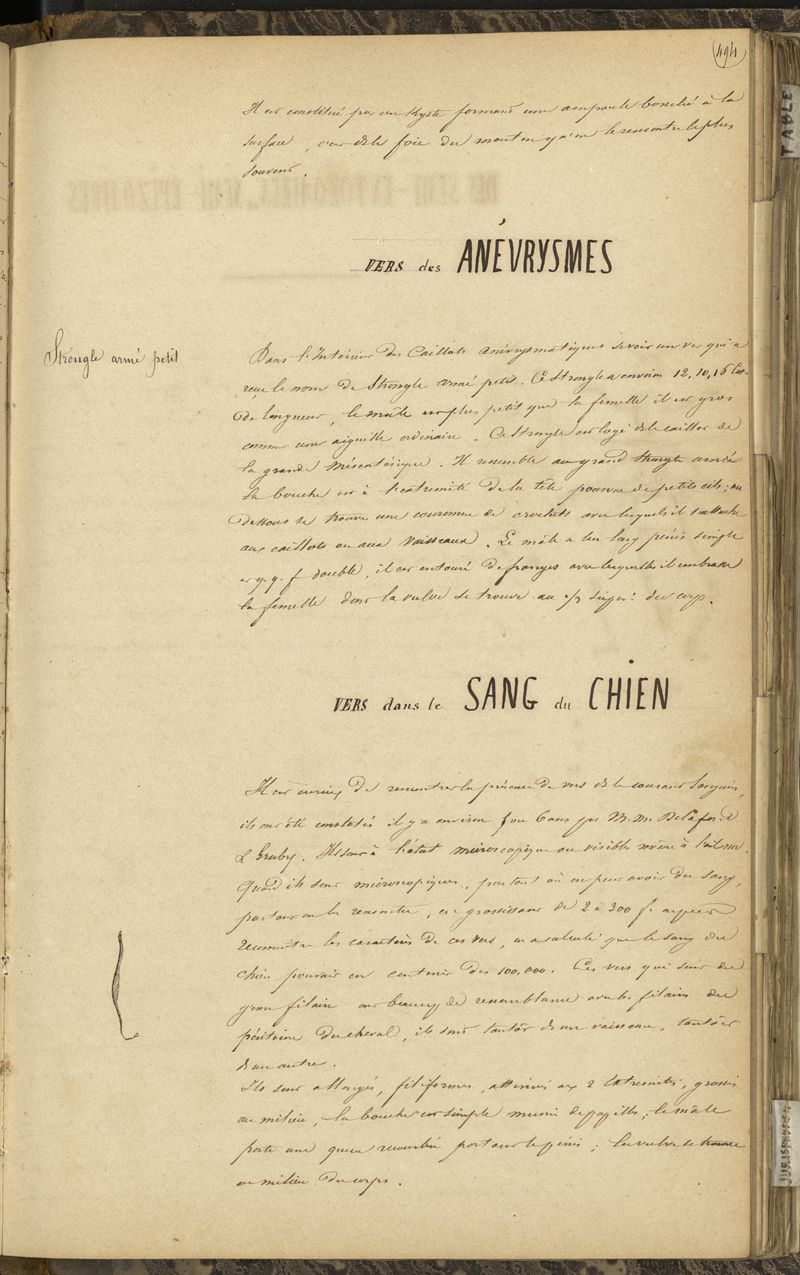 494
TABLE
Il est constitué par un Kyste formant une ampoule bosselée à la
surface, c'est ds le foie du mouton qu'on le rencontre le plus
souvent.
VERS des ANÉVRYSMES
Strongle armé petit
Dans l'Intérieur des Caillots anévrysmatiques se voit un ver qui a
reçu le nom de Strongle armé petit. Ce Strongle a environ 12, 10, 16
de longueur, le mâle est plus petit que la femelle il est gros
comme une aiguille ordinaire. Ce Strongle est logé ds le caillot de
la grande Mésentérique. Il ressemble au grand strongle armé
la bouche est à l'extrémité de la tête pourvue de petits cils; au
dessous se trouve une couronne de crochets avec lesquels il s'attache
aux caillots ou aux Vaisseaux. Le mâle a un long pénis simple
et q. q. f double, il est entouré de franges avec lesquelles il embrasse
la femelle dont la vulve se trouve au super: du corp.
VERS dans le SANG du CHIEN
Il est curieux de rencontrer la présence de vers ds le courant Sanguin,
ils ont été constatés il y a environ 5 ou 6 ans par M. M. Delafond
& Gruby. Ils sont à l'état microscopique ou visibles même à l'œil nu.
Quand ils sont microscopiques, partout où on peut avoir du sang,
partout on les rencontre, en grossissant de 2 à 300 f. on peut
reconnaître les caractères de ces vers, on a calculé que le sang du
chien pouvait en contenir des 100,000. Ces vers qui sont du
genre filaire ont beaucp de ressemblance avec les filaires du
péritoine du cheval, ils sont tantôt ds un vaisseau, tantôt
ds un autre.
Ils sont allongés, filiformes, atténués aux 2 Extremités, grossis
au milieu, la bouche est simple munie de papilles; le mâle
porte une queue recourbée portant le pénis; la vulve se trouve
au milieu du corps.
JURISPRUDEN